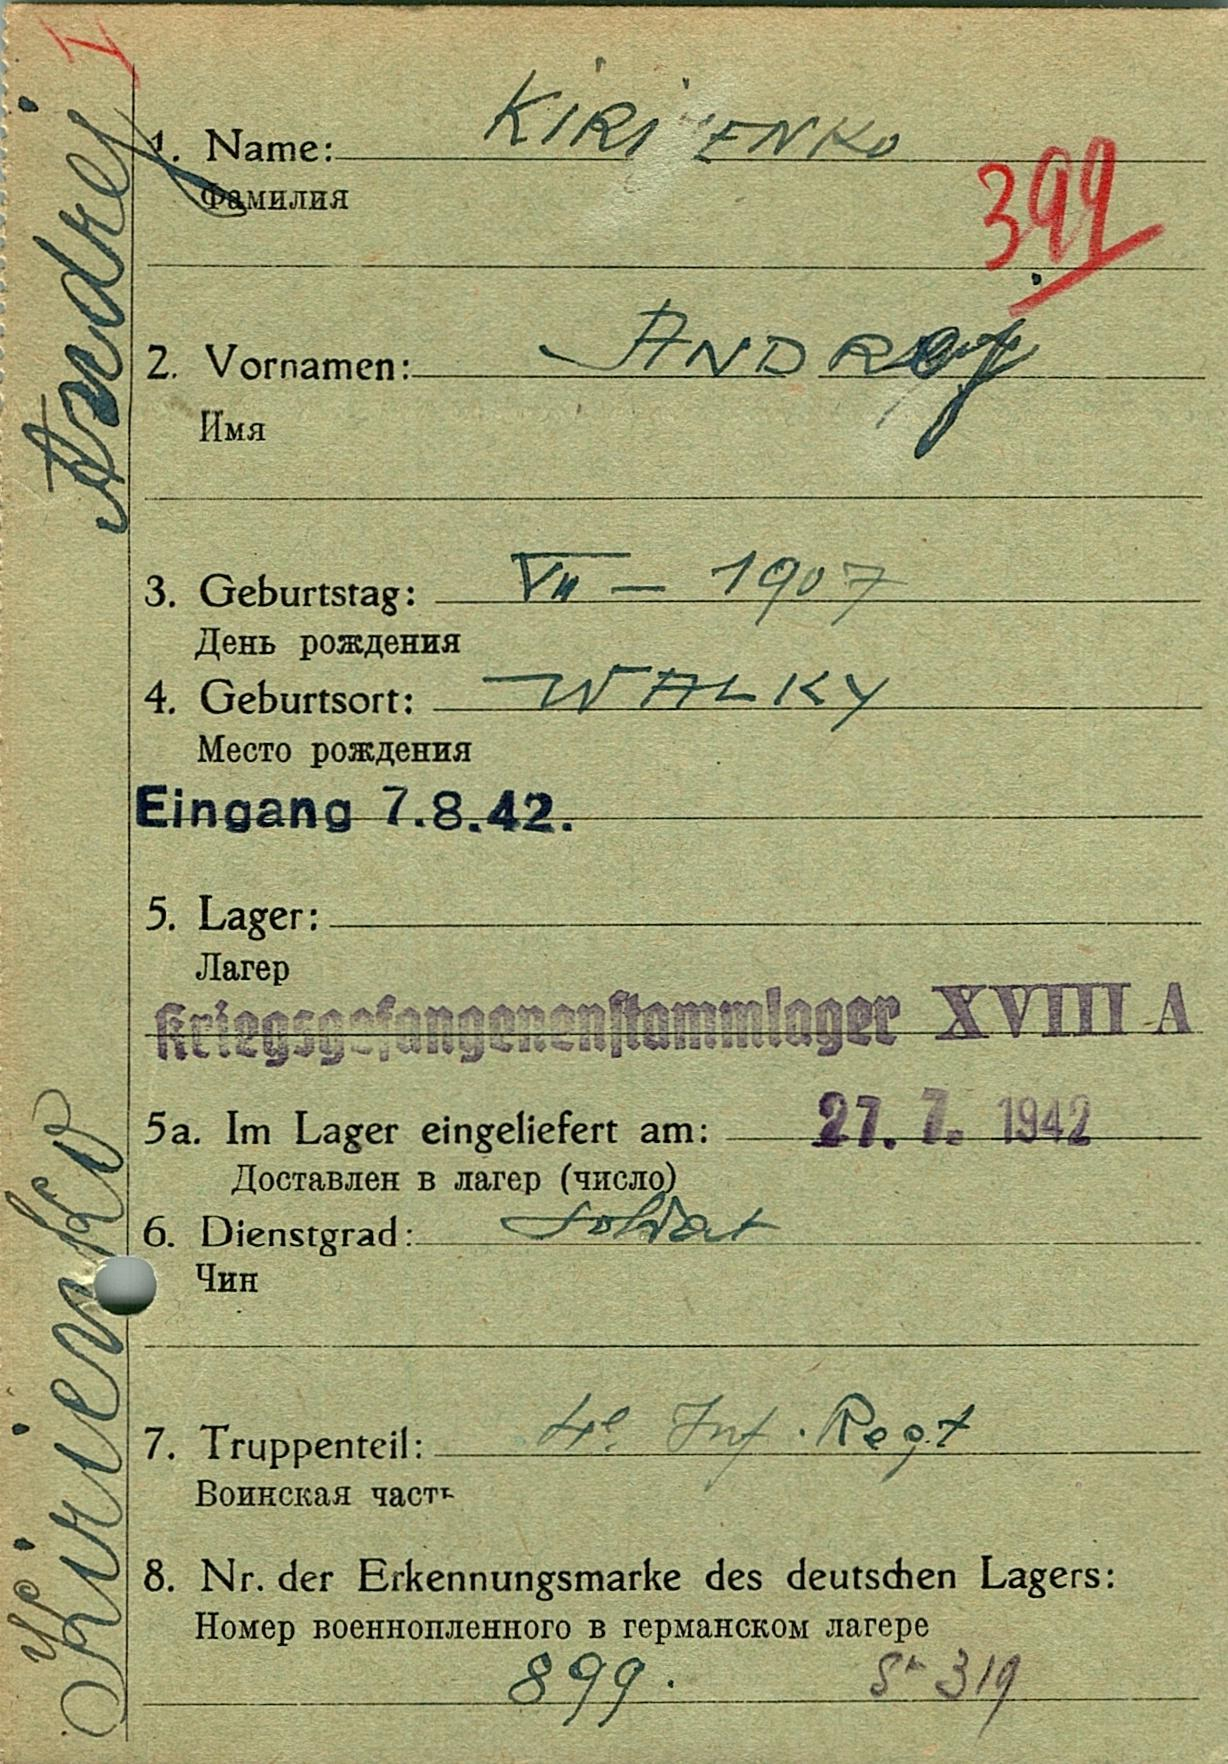 I
Kirienko Andrej
1. Name: KIRIJENKO
Фамилия
399
2. Vornamen: ANDREJ
Имя
3. Geburtstag: VII — 1907
День рождения
4. Geburtsort: WALKY
Место рождения
Eingang 7.8.42.
5. Lager:
Лагер
Kriegsgefangenenstammlager XVIII A
5a. Im Lager eingeliefert am: 27. 7. 1942
Доставлен в лагер (число)
6. Dienstgrad: Soldat
Чин
7. Truppenteil: 4e Inf. Regt
Воинская часть
8. Nr. der Erkennungsmarke des deutschen Lagers:
Номер военнопленного в германском лагере
899. 319